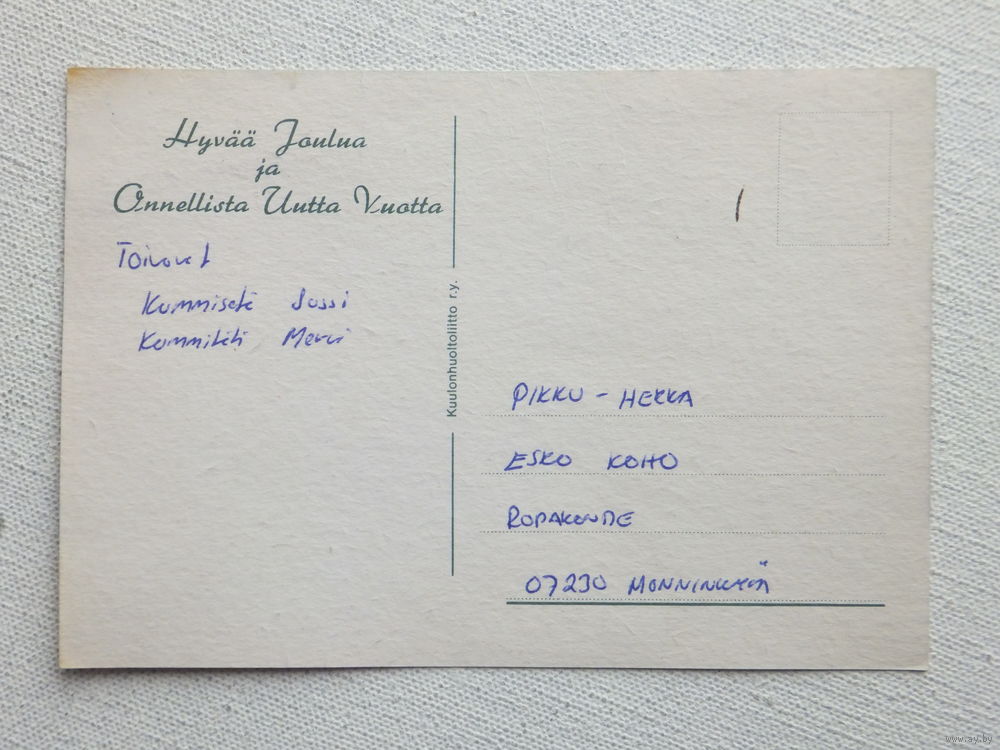 Hyvää Joulua
ja
Onnellista Uutta Vuotta
Toivovat
Kummisetä Jussi
Kummitäti Mervi
Kuulonhuoltoliitto r.y.
PIKKU - HERRA
ESKO KOHO
07230 MONNINKYLÄ
www.ay.by